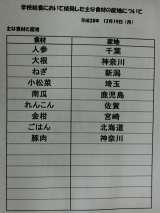 学校給食において使用した主な食材の産地について
平成28年 12月19日（月）
主な食材と産地
食材 産地
人参 千葉
大根 神奈川
ねぎ 新潟
小松菜 埼玉
南瓜 鹿児島
れんこん 佐賀
金柑 宮崎
ごはん 北海道
豚肉 神奈川